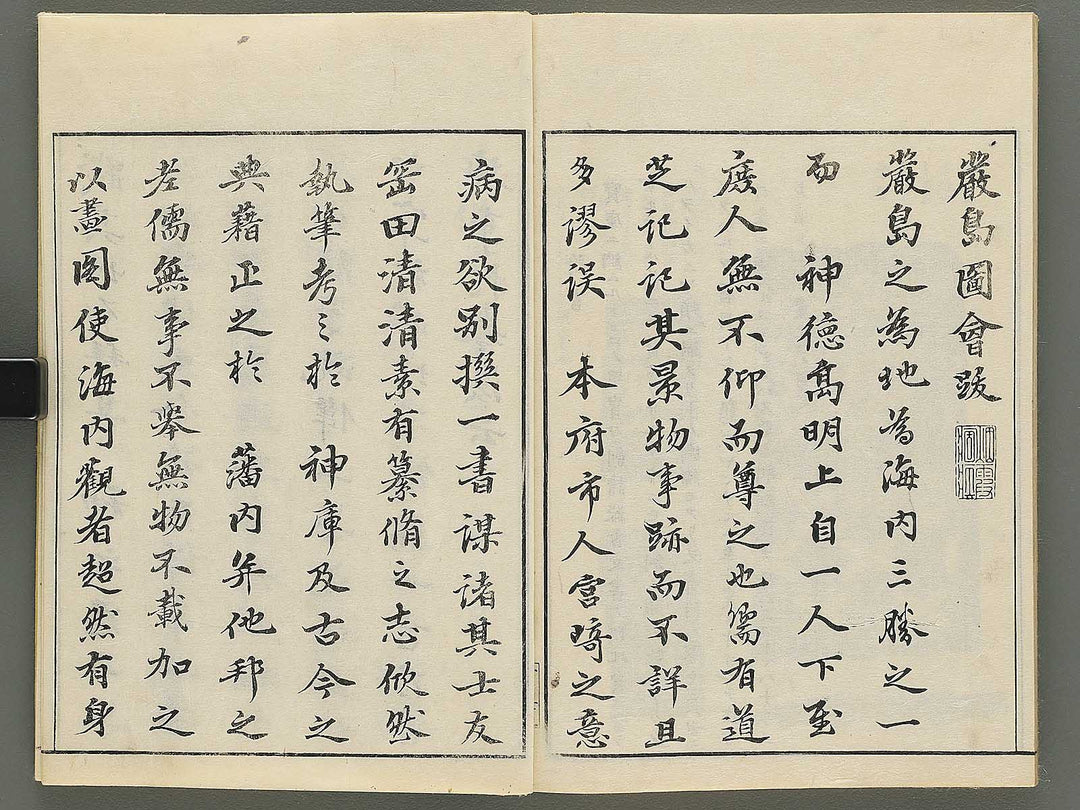 嚴島圖會跋
嚴島之為地為海内三勝之一
而 神德高明上自一人下至
庶人無不仰而尊之也舊有道
芝記記其景物事跡而不詳且
多謬誤 本府市人宮﨑之意
病之欲別撰一書謀諸其士友
岡田清清素有纂脩之志欣然
執筆考之於 神庫及古今之
典藉正之於 藩内并他邦之
老儒無事不舉無物不載加之
以畫圖使海内觀者超然有身